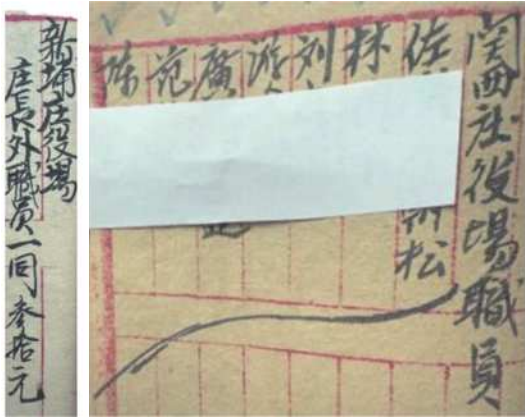 新埔庄役場
庄長外職員一同 参拾元
関西庄役場職員
佐
松
林
刘
游
廣
范
陳